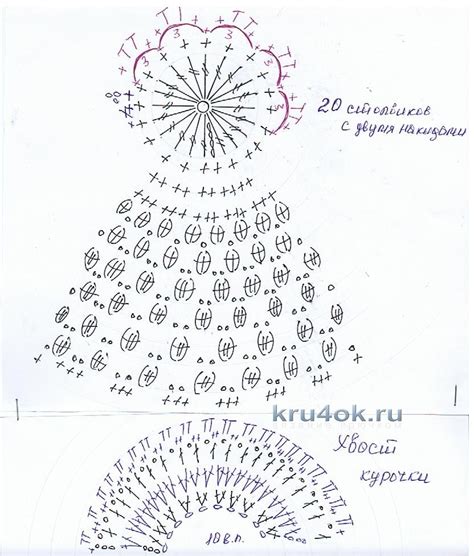 3 3 3 3 3
20 столбиков
с двумя накидами
kru4ok.ru
Хвост
курочки
10 в.п.